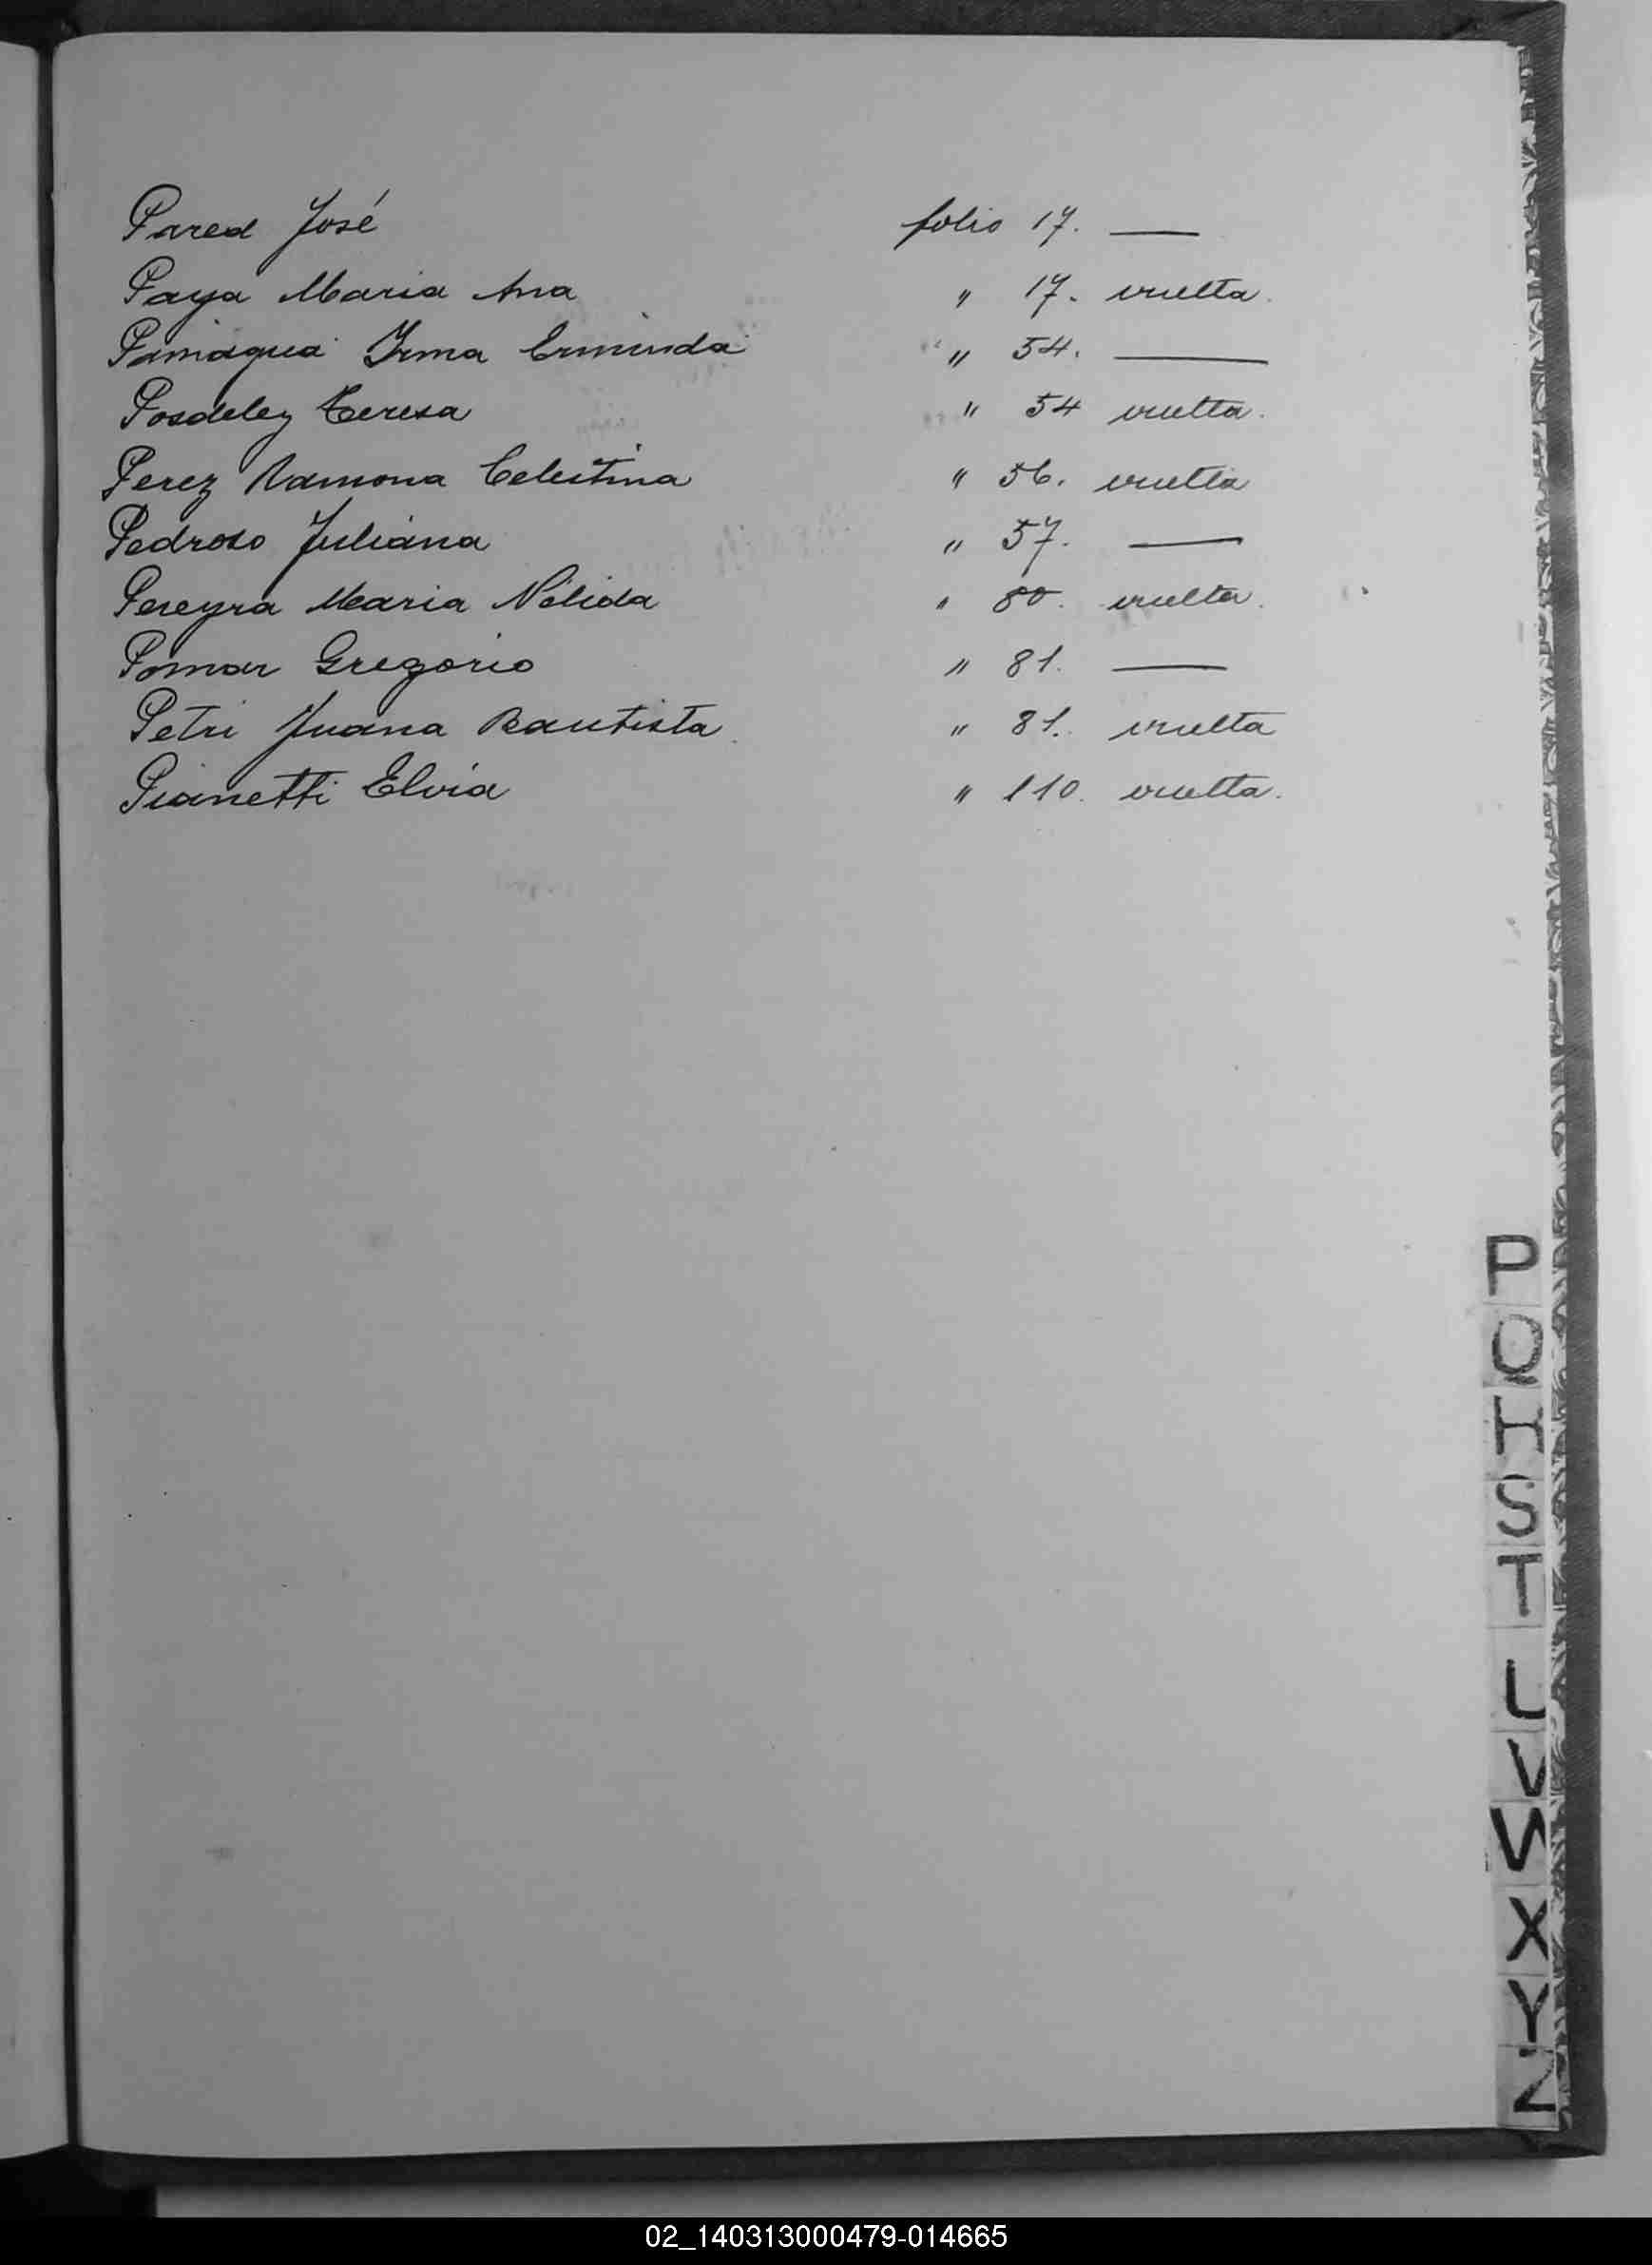 Pared José folio 17. —
Paya Maria Ana " 17. vuelta.
Pamagua Irma Erminda " 54. —
Posdeley Teresa " 54 vuelta.
Perez Ramona Celestina " 56. vuelta
Pedroso Juliana " 57. —
Pereyra Maria Nélida " 80. vuelta.
Pomar Gregorio " 81. —
Petri Juana Bautista " 81. vuelta
Pianetti Elvia " 110. vuelta.
P
Q
R
S
T
U
V
W
X
Y
Z
02_140313000479-014665